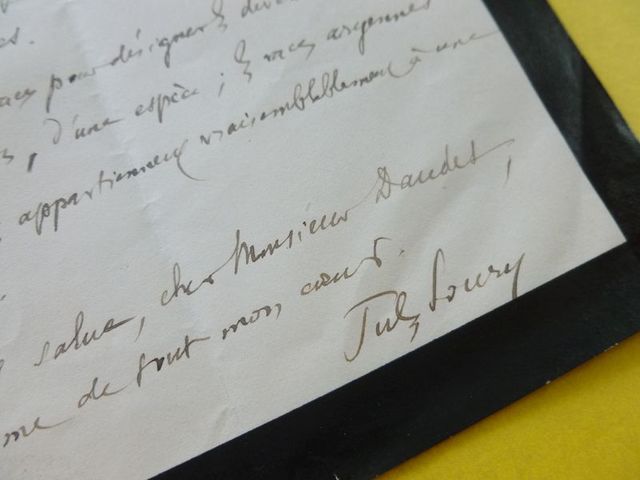 es.
pour désigner
, d'une espèce ; les races aryennes
appartiennent vraisemblablement à une
salue, cher Monsieur Daudet,
me de tout mon cœur.
Jules Soury